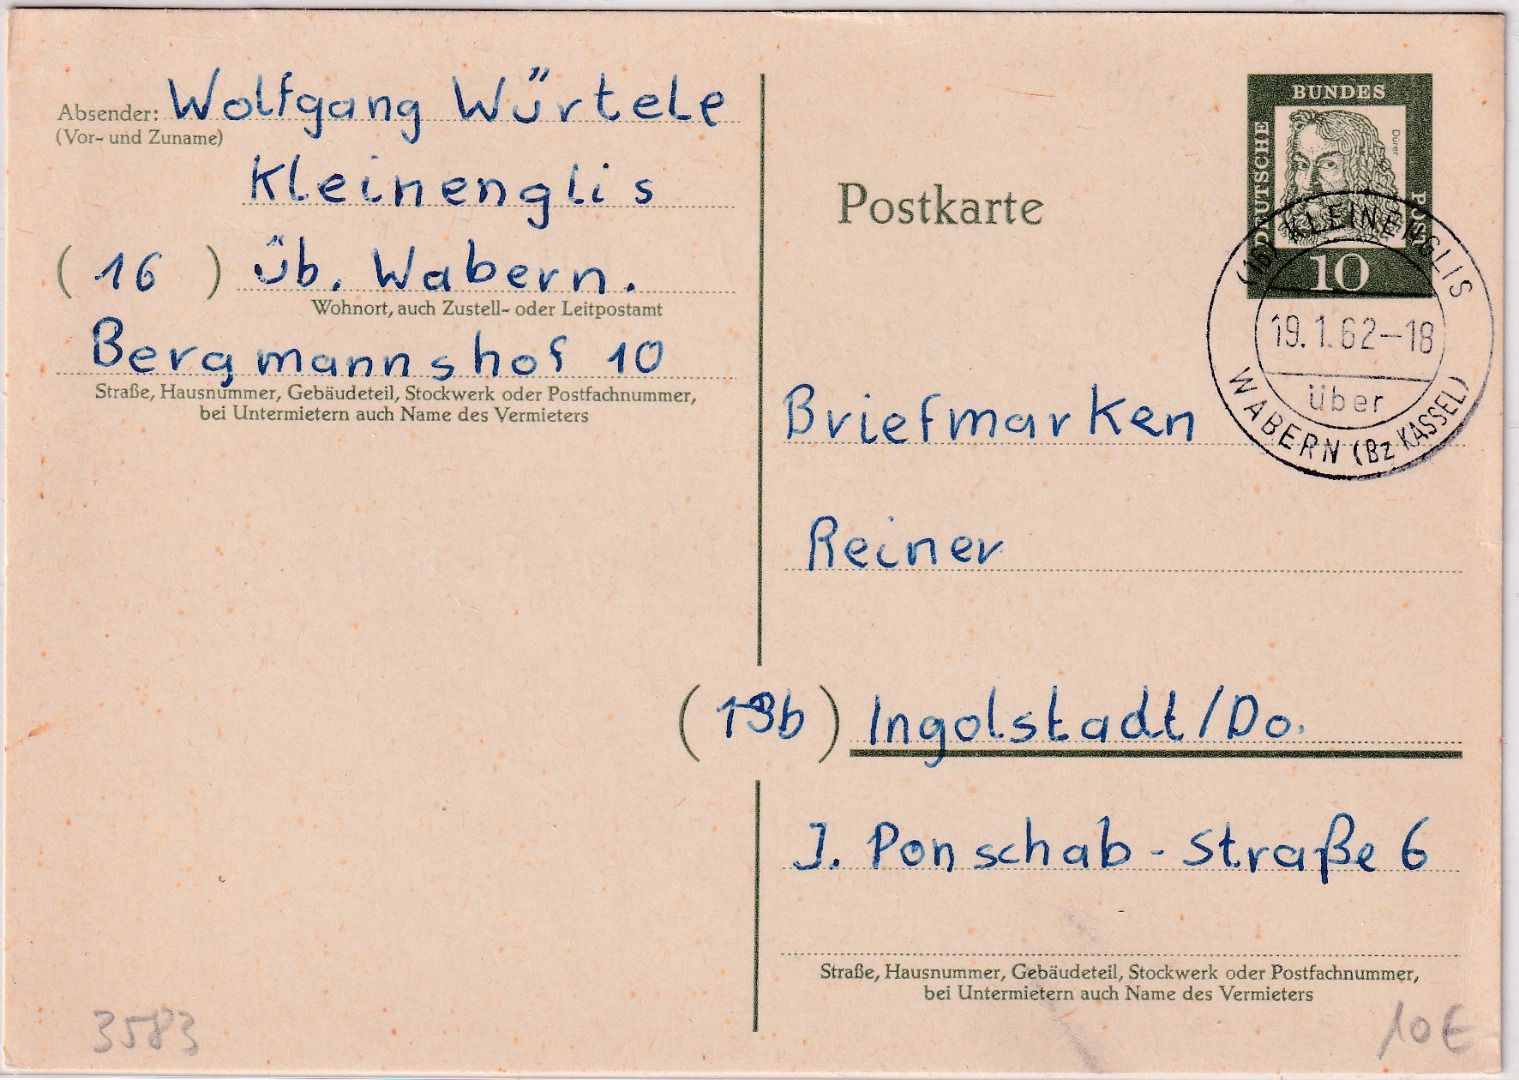 Absender: Wolfgang Würtele
(Vor- und Zuname)
Kleinenglis
(16) üb. Wabern.
Wohnort, auch Zustell- oder Leitpostamt
Bergmannshof 10
Straße, Hausnummer, Gebäudeteil, Stockwerk oder Postfachnummer,
bei Untermietern auch Name des Vermieters
Postkarte
DEUTSCHE
BUNDES
POST
Dürer
10
(16) KLEINENGLIS
19.1.62-18
über
WABERN (Bz KASSEL)
Briefmarken
Reiner
(13b) Ingolstadt/Do.
J. Ponschab-Straße 6
Straße, Hausnummer, Gebäudeteil, Stockwerk oder Postfachnummer,
bei Untermietern auch Name des Vermieters
3583
10€